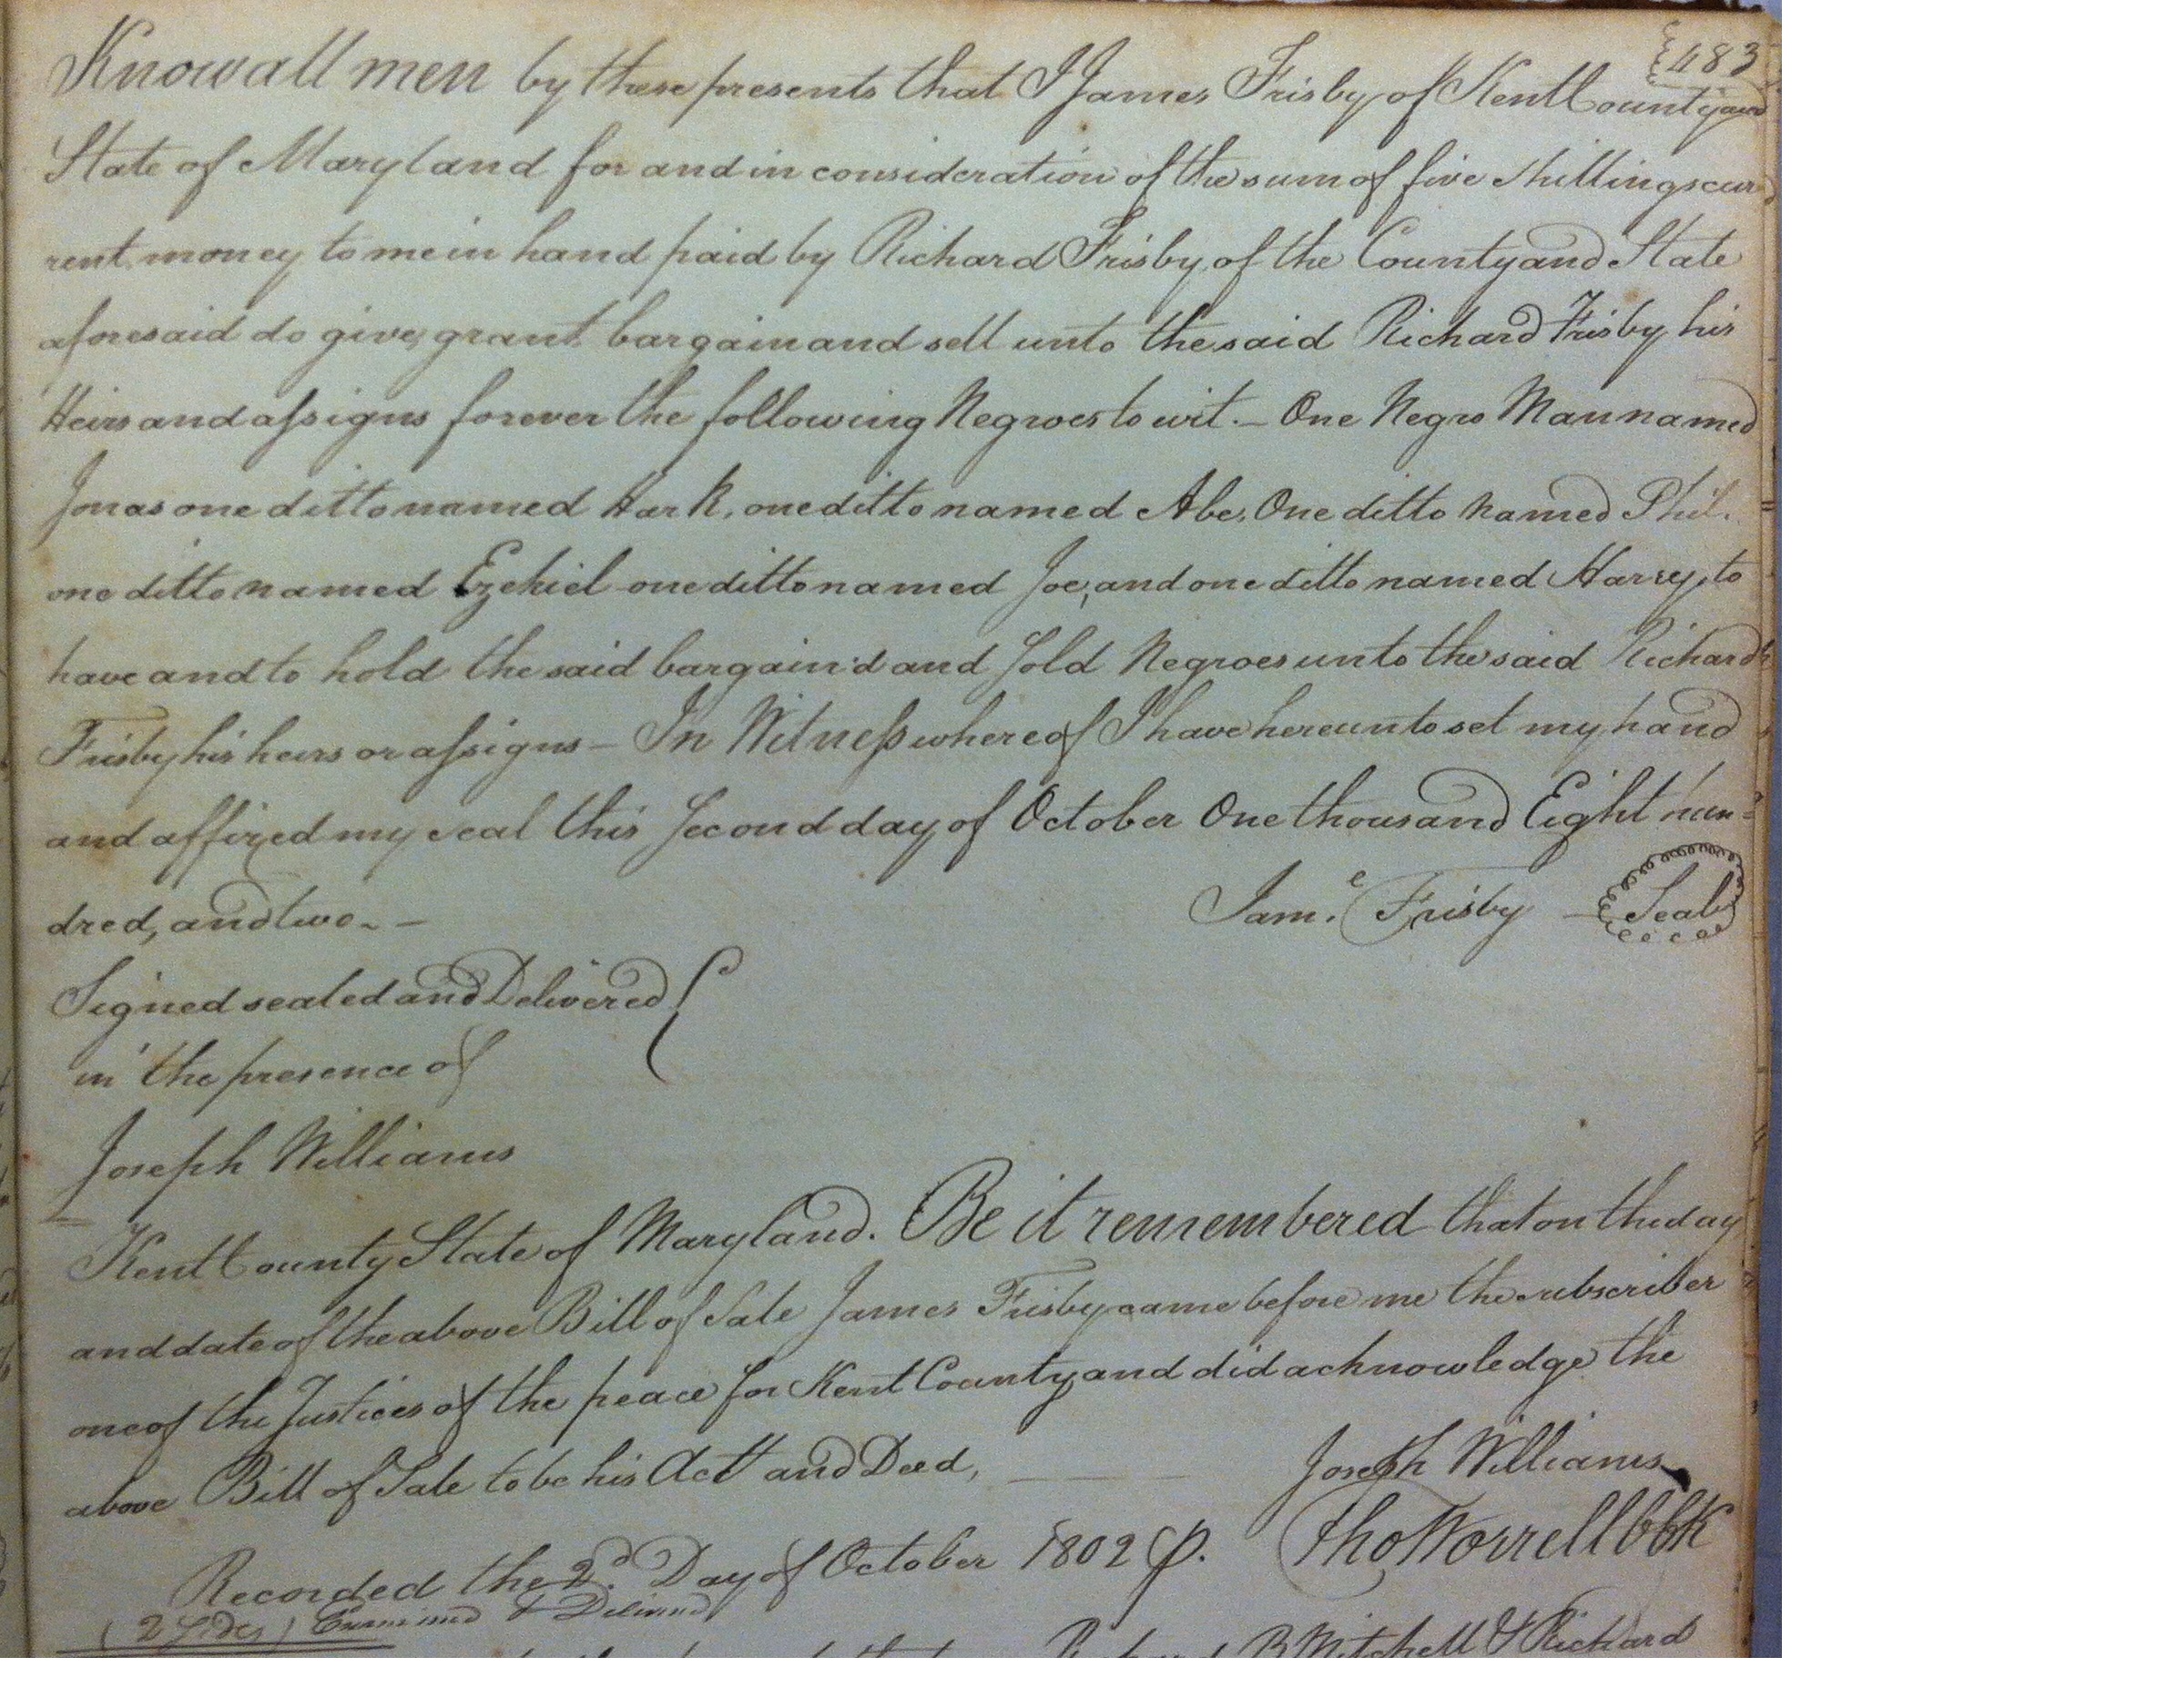 483
Know all men by these presents that I James Frisby of Kent County and
State of Maryland for and in consideration of the sum of five shillings cur
rent money to me in hand paid by Richard Frisby of the County and State
aforesaid do give, grant bargain and sell unto the said Richard Frisby his
Heirs and assigns forever the following Negroes to wit. - One Negro Man named
Jonas one ditto named Hark, one ditto named Abe, One ditto named Phil.
one ditto named Ezekiel one ditto named Joe, and one ditto named Harry, to
have and to hold the said bargain'd and Sold Negroes unto the said Richard
Frisby his heirs or assigns - In Witness whereof I have hereunto set my hand
and affixed my seal this Second day of October One thousand Eight hun=
dred, and two. - Jam.e Frisby Seal
Signed sealed and Delivered
in the presence of
Joseph Williams
Kent County State of Maryland. Be it remembered that on the day
and date of the above Bill of Sale James Frisby came before me the subscriber
one of the Justices of the peace for Kent County and did acknowledge the
above Bill of Sale to be his Act and Deed, Joseph Williams
Recorded the 2d. Day of October 1802 p. Tho Worrell Clk
(2 Sides) Examined & Deliverd
Richard B Mitchell & Richard